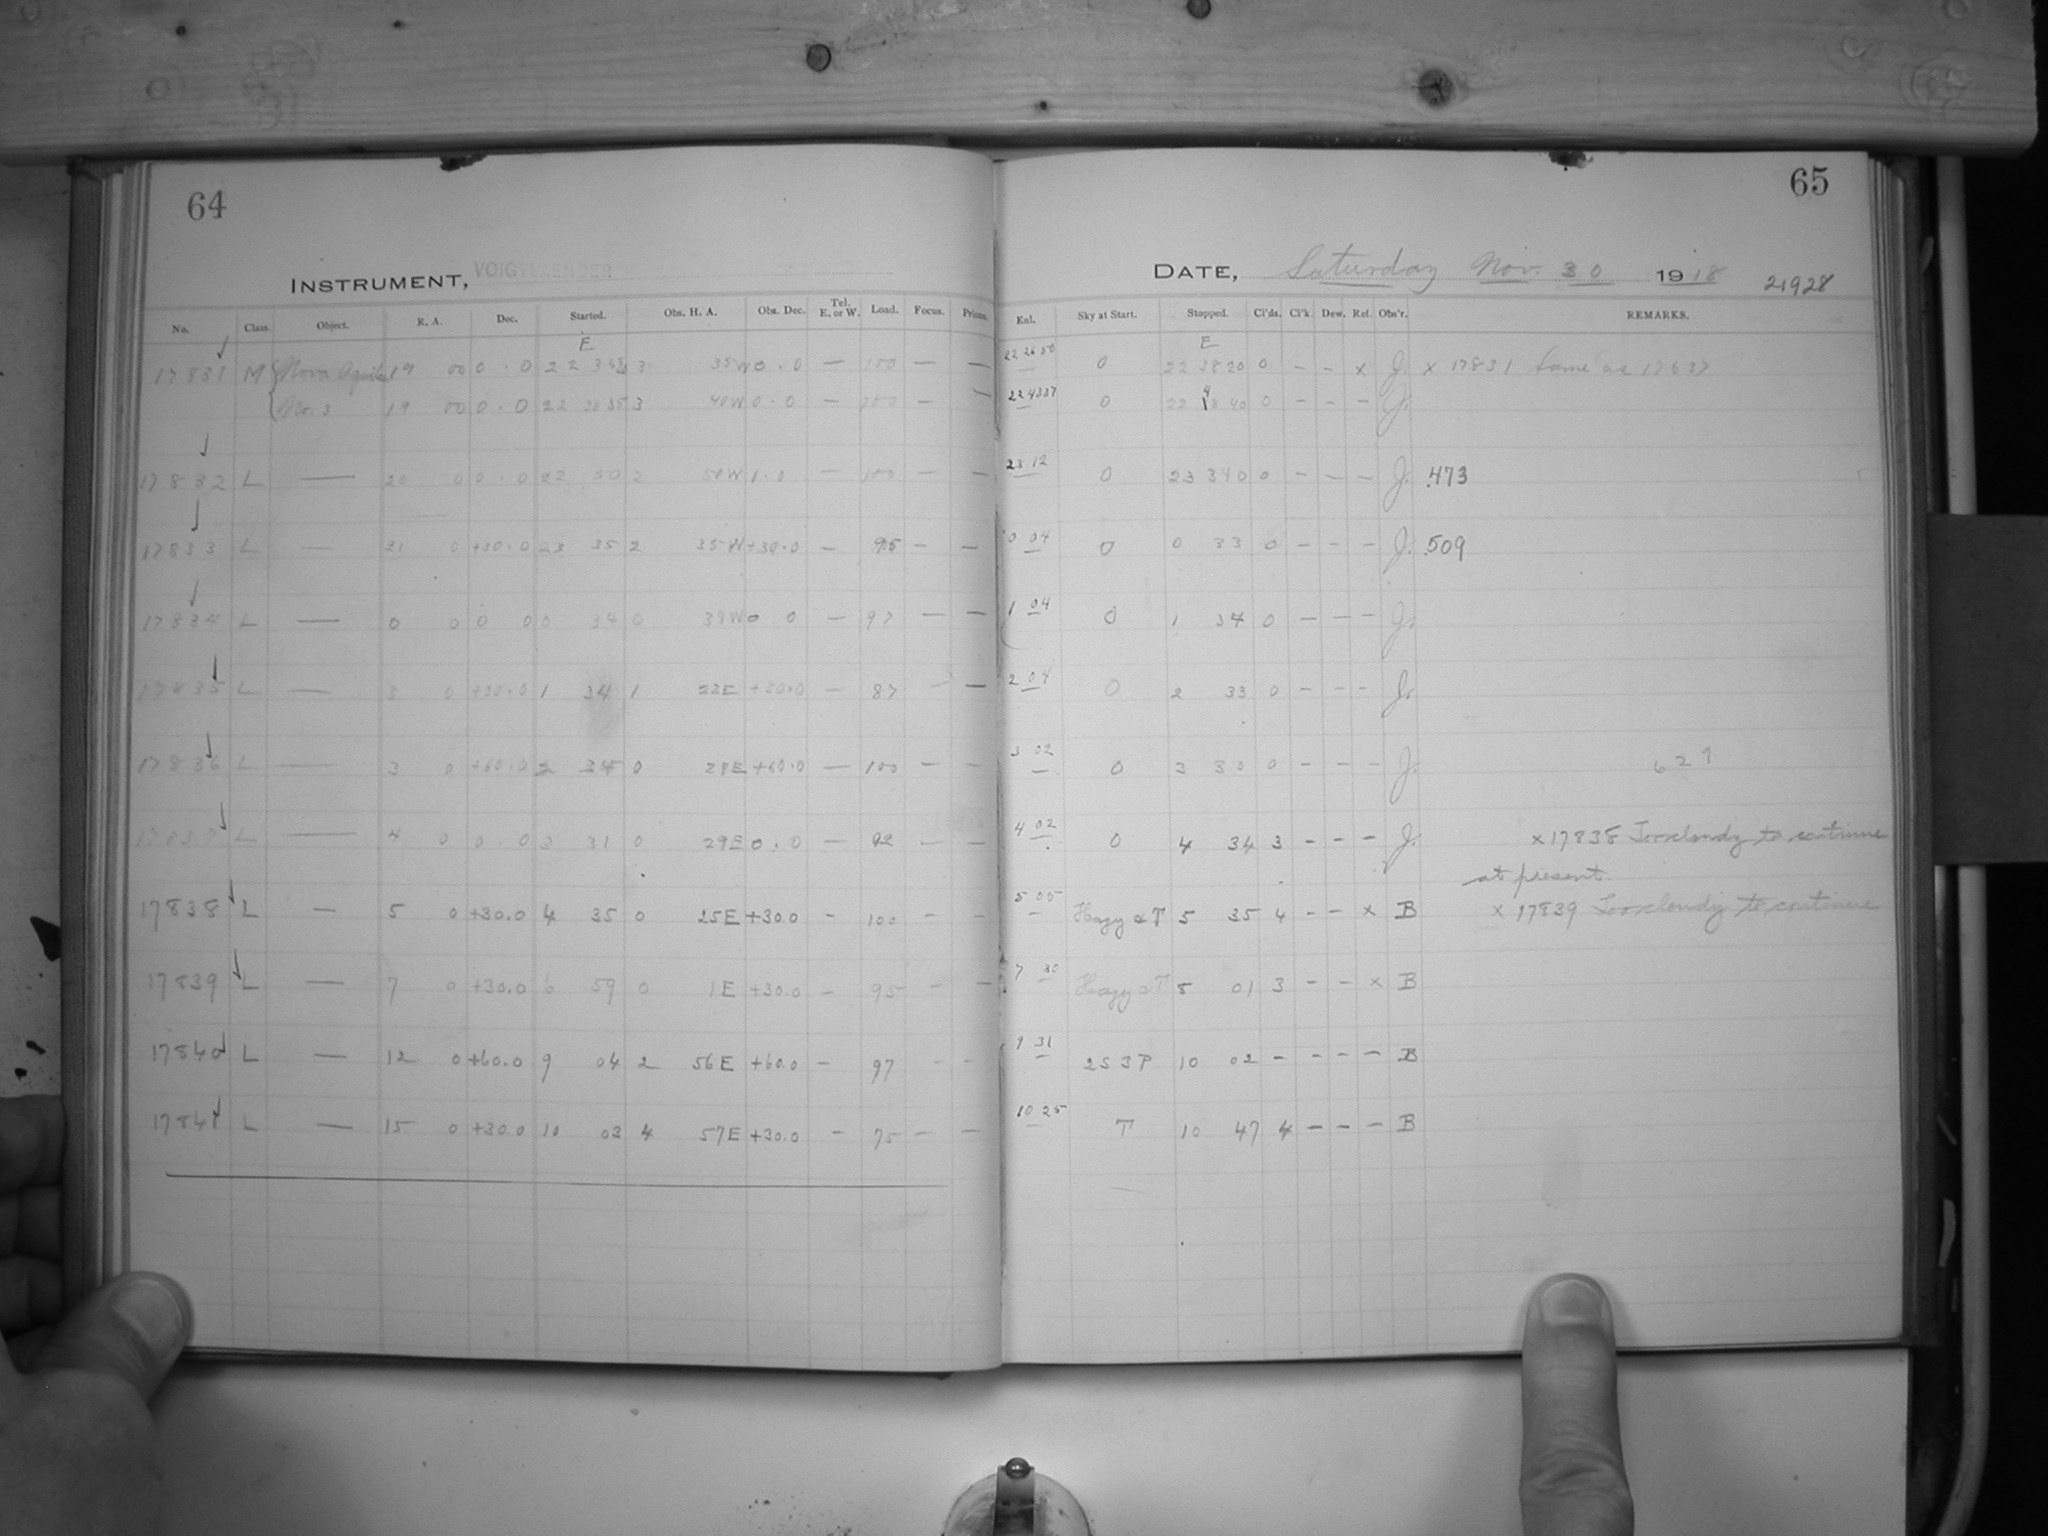 64
INSTRUMENT, VOIGTLAENDER
No. Class. Object. R. A. Dec. Started. Obs. H. A. Obs. Dec. Tel. E. or W. Load. Focus. Prisms.
E
17831 M Nova Aquilae 19 00 0.0 22 3 35W 0.0 — 100 — —
No. 3 19 00 0.0 22 3835 3 40W 0.0 — 100 — —
17832 L — 20 0 0.0 22 50 2 50W 1.0 — 100 — —
17833 L — 21 0 +30.0 23 35 2 35W +30.0 — 95 — —
17834 L — 0 0 0 0 0 34 0 39W 0 0 — 97 — —
17835 L — 3 0 +30.0 1 34 1 22E +30.0 — 87 — —
17836 L — 3 0 +60.0 2 34 0 28E +60.0 — 100 — —
17837 L — 4 0 0.0 3 31 0 29E 0.0 — 92 — —
17838 L — 5 0 +30.0 4 35 0 25E +30.0 - 100 - -
17839 L — 7 0 +30.0 6 59 0 1E +30.0 - 95 - -
17840 L — 12 0 +60.0 9 04 2 56E +60.0 - 97 - -
17841 L — 15 0 +30.0 10 03 4 57E +30.0 - 75 - -
65
DATE, Saturday Nov. 30 1918 21928
Enl. Sky at Start. Stopped. Cl'ds. Cl'k. Dew. Ref. Obs'r. REMARKS.
E
22 26 50 0 22 2820 0 - - x J. x 17831 Same as 17637
22 4337 0 22 48 40 0 - - - J.
23 12 0 23 34 0 0 - - - J. .473
0 04 0 0 33 0 - - - J. .509
1 04 0 1 34 0 - - - J.
2 04 0 2 33 0 - - - J.
3 02 0 3 30 0 - - - J. 629
4 02 0 4 34 3 - - - J. x 17838 Too cloudy to continue
at present.
5 05 Hazy & T 5 35 4 - - x B x 17839 Too cloudy to continue
7 30 Hazy & T 5 01 3 - - x B
9 31 2S 3P 10 02 - - - - B
10 25 T 10 47 4 - - - B